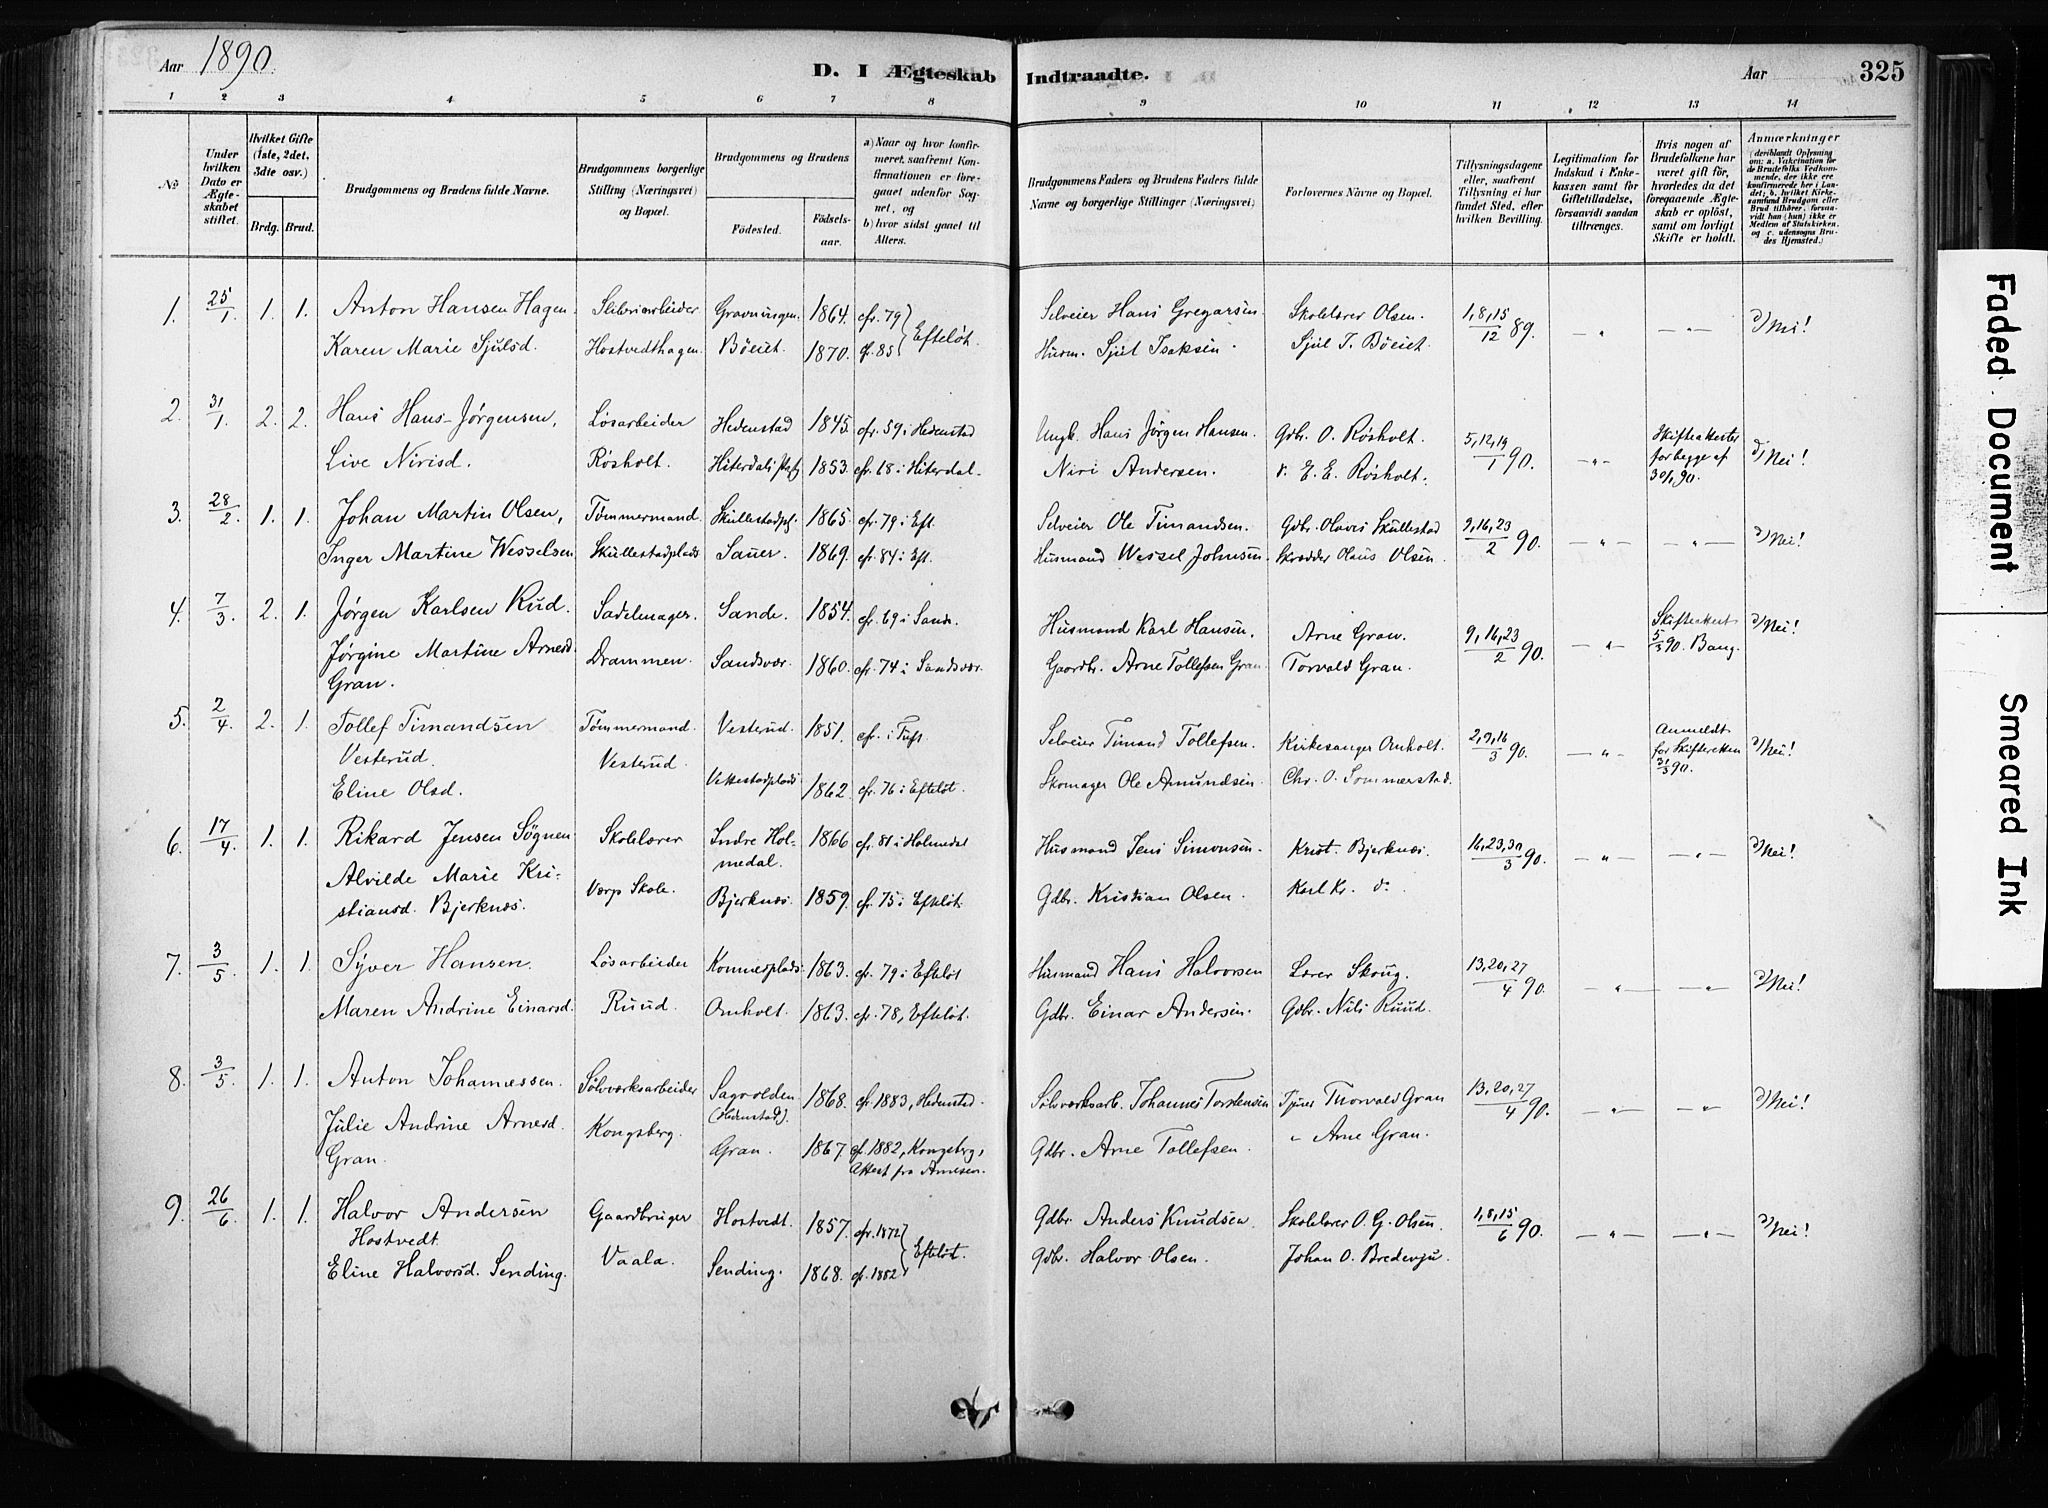 Aar 1890. D. I Ægteskab Indtraadte. Aar 325
1 2 3 4 5 6 7 8 9 10 11 12 13 14
No
Under hvilken Dato er Ægteskabet stiftet.
Hvilket Gifte (1ste, 2det, 3dte osv.)
Brdg. Brud.
Brudgommens og Brudens fulde Navne.
Brudgommens borgerlige Stilling (Næringsvei) og Bopæl.
Brudgommens og Brudens
Fødested. Fødselsaar.
a) Naar og hvor konfirmeret, saafremt Konfirmationen er foregaaet udenfor Sognet, og
b) hvor sidst gaaet til Alters.
Brudgommens Faders og Brudens Faders fulde Navne og borgerlige Stillinger (Næringsvei)
Forlovernes Navne og Bopæl.
Tillysningsdagene eller, saafremt Tillysning ei har fundet Sted, efter hvilken Bevilling.
Legitimation for Indskud i Enkekassen samt for Giftetilladelse, forsaavidt saadan tiltrænges.
Hvis nogen af Brudefolkene har været gift før, hvorledes da det foregaaende Ægteskab er opløst, samt om lovligt Skifte er holdt.
Anmærkninger (deriblandt Oplysning om: a. Vakcination for de Brudefolks Vedkommende, der ikke ere konfirmerede her i Landet; b. hvilket Kirkesamfund Brudgom eller Brud tilhører, forsaavidt han (hun) ikke er Medlem af Statskirken, og c. udensogns Brudes Hjemsted.)
1. 25/1. 1. 1. Anton Hansen Hagen. Gravningen. 1864. cfr. 79 Selveier Hans Gregarsen Skolelærer Olsen. 1, 8, 15/12 89. — „ — — „ —
Karen Marie Sjulsd. Hostvedthagen. Böeiet. 1870. cf. 85 Efteløt. Husm. Sjul Isaksen. Sjul I. Böeiet.
2. 31/1. 2. 2. Hans Hans-Jørgensen, Løsarbeider Hedenstad 1845. cfr. 59 i Hedenstad Ungk. Hans Jörgen Hansen. Gdbr. O. Rösholt. 5, 12, 19/1 90. — „ — Skifteattester for begge af 30/1 90. Nei!
Live Nirisd. Røsholt. 1853. cfr. 68 i Hiterdal. Niri Andersen. E. E. Rösholt.
3. 28/2. 1. 1. Johan Martin Olsen, Tømmermand. Skullestadpl. 1865. cfr. 79 i Eft. Selveier Ole Timandsen. Gdbr. Olaves Skullestad 9, 16, 23/2 90. — „ — — „ — Nei!
Inger Martine Wesselsen Skullestadplads Sauer. 1869. cfr. 84 i Eft. Husmand Wessel Johnsen. Skrædder Olaus Olsen.
4. 7/3. 2. 1. Jørgen Karlsen Rud. Sadelmager. Sande. 1854. cfr. 69 i Sande. Husmand Karl Hansen. Arne Gran. 9, 16, 23/2 90. — „ — Skifteattest 5/3 90. Bang. Nei!
Jørgine Martine Arnesd. Gran. Drammen. Sandsvær. 1860. cfr. 74 i Sandsvær. Gaardbr. Arne Tollefsen Gran Torvald Gran.
5. 2/4. 2. 1. Tollef Timandsen Vesterud. Tømmermand. Vesterud. 1851. cfr. i Tuft. Selveier Timand Tollefsen. Kirkesanger Omholt. 2, 9, 16/3 90. — „ — Anmeldt for Skifteretten 31/3 90. Nei!
Eline Olsd. Vesterud. Vettestadplads 1862. cfr. 76 i Efteløt. Skomager Ole Amundsen. Chr. O. Sommerstad.
6. 17/4. 1. 1. Rikard Jensen Søgnen Skolelærer Indre Holmedal. 1866 cfr. 81 i Holmedal Husmand Jens Simonsen. Krist. Bjerknæs. 16, 23, 30/3 90. — „ — — „ — Nei!
Alvilde Marie Kristiansd. Bjerknæs. Værp Skole. Bjerknæs. 1859. cfr. 75 i Efteløt. Gdbr. Kristian Olsen. Karl Kr. do
7. 3/5. 1. 1. Syver Hansen. Løsarbeider 1863. cfr. 79 i Efteløt Husmand Hans Halvorsen Lærer Skoug. 13, 20, 27/4 90. — „ — — „ — Nei!
Maren Andrine Einarsd. Ruud. Omholt. 1863. cfr. 78, Efteløt. Gdbr. Einar Andersen. Gdbr. Nils Ruud.
8. 3/5. 1. 1. Anton Johannessen. Sølvværksarbeider Sagvolden (Hedenstad). 1868. cfr. 1883, Hedenstad. Sølvværksarb. Johannes Torstensen Thorvald Gran 13, 20, 27/4 90. — „ — — „ — Nei!
Julie Andrine Arnesd. Gran. Kongsberg. Gran. 1867. cf. 1882, Kongsberg, Attest fra Arnesen. Gdbr. Arne Tollefsen. „ Arne Gran.
9. 26/6. 1. 1. Halvor Andersen Hostvedt Gaardbruger Hostvedt. 1857. cfr. 1872 Gdbr. Anders Knudsen. Skolelærer O. G. Olsen. 1, 8, 15/6 90. — „ — — „ — Nei!
Eline Halvorsd. Sending. Vaala. Sending. 1868. cf. 1882 Efteløt. Gdbr. Halvor Olsen. Johan O. Bredevju.
Faded Document
Smeared Ink